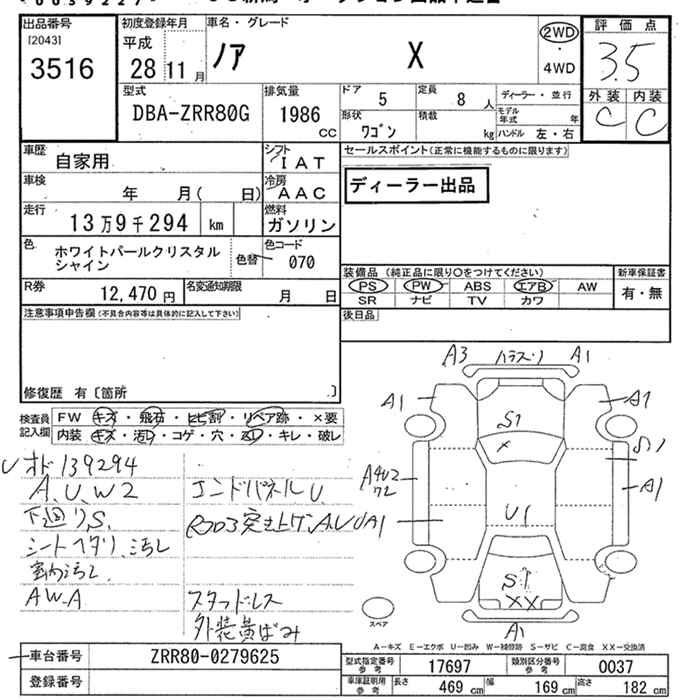 出品番号 初度登録年月 車名・グレード 評価点
[2043] 平成 ノア X 2WD 3.5
3516 28 11月 ・ 4WD
型式 排気量 ドア 定員 ディーラー・並行 外装 内装
DBA-ZRR80G 1986 cc 5 8人 モデル年式 年 C C
形状 ワゴン 積載 kg ハンドル 左・右
車歴 自家用 シフト IAT セールスポイント(正常に機能するものに限ります)
車検 年 月( 日) 冷房 AAC ディーラー出品
走行 13万9千294 km 燃料 ガソリン
色 ホワイトパールクリスタルシャイン 色替 色コード 070
装備品(純正品に限り○をつけてください) 新車保証書
R券 12,470円 名変通知期限 月 日 PS PW ABS エアB AW 有・無
SR ナビ TV カワ
注意事項申告欄(不具合内容等は具体的に記入して下さい) 後日品
修復歴 有〔箇所 〕
A3 ハラスリ A1
検査員記入欄 FW キズ・飛石・ヒビ割・リペア跡・×要
内装 キズ・汚レ・コゲ・穴・凹・キレ・破レ
A1 S1 A1
S1
オド139294
A.U.W2 エンドパネルU.
A4U2
A1
下廻リS. R003突き上ゲA.U
A1 U1
シートヘタリ、汚レ
室内汚レ
AW.A スタッドレス
S1
XX
外装黄ばみ
スペア A1
A-キズ E-エクボ U-凹み W-補修跡 S-サビ C-腐食 XX-交換済
車台番号 ZRR80-0279625 型式指定番号 参考 17697 類別区分番号 参考 0037
登録番号 車庫証明用 参考 長さ 469 cm 幅 169 cm 高さ 182 cm